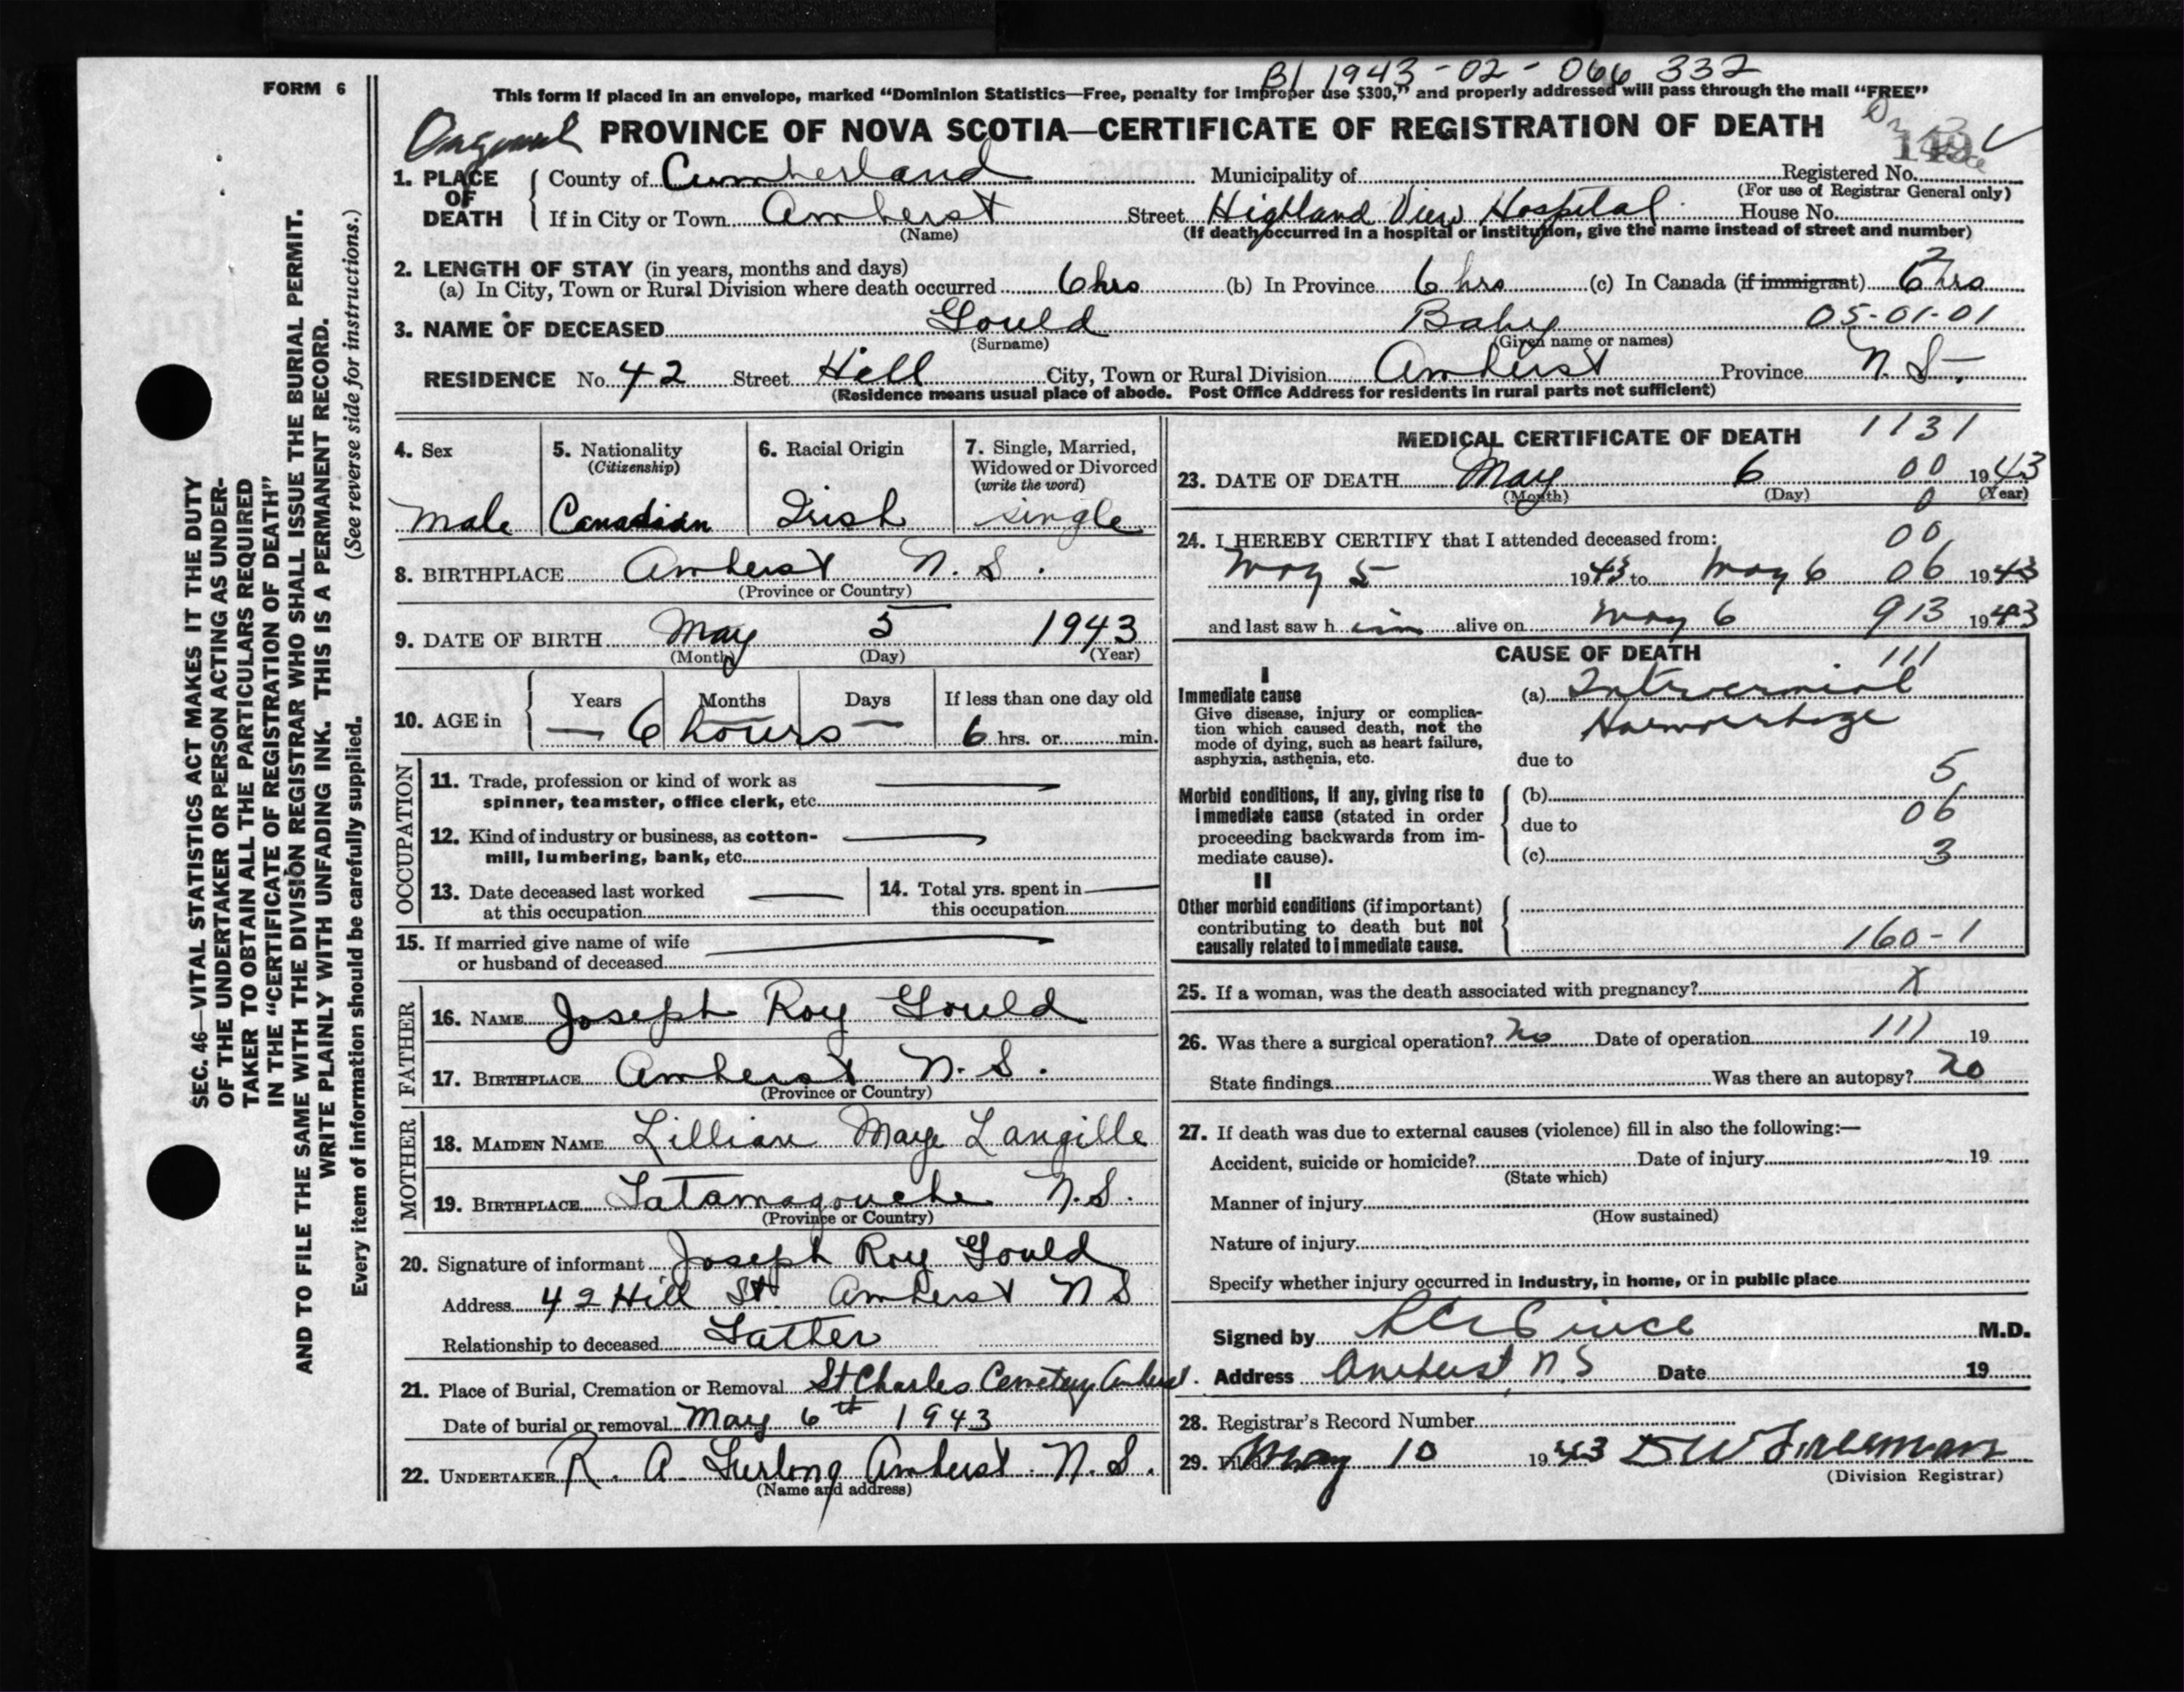 B1 1943-02-066332
FORM 6
This form if placed in an envelope, marked “Dominion Statistics—Free, penalty for improper use $300,” and properly addressed will pass through the mail “FREE”
Original PROVINCE OF NOVA SCOTIA—CERTIFICATE OF REGISTRATION OF DEATH
149
1. PLACE OF DEATH
County of Cumberland Municipality of Registered No.
(For use of Registrar General only)
If in City or Town Amherst Street Highland View Hospital House No.
(Name) (If death occurred in a hospital or institution, give the name instead of street and number)
2. LENGTH OF STAY (in years, months and days)
(a) In City, Town or Rural Division where death occurred 6 hrs (b) In Province 6 hrs (c) In Canada (if immigrant) 6 hrs
2
3. NAME OF DECEASED Gould Baby 05-01-01
(Surname) (Given name or names)
RESIDENCE No. 42 Street Hill City, Town or Rural Division Amherst Province N.S.
(Residence means usual place of abode. Post Office Address for residents in rural parts not sufficient)
4. Sex 5. Nationality (Citizenship) 6. Racial Origin 7. Single, Married, Widowed or Divorced (write the word)
Male Canadian Irish single
8. BIRTHPLACE Amherst N.S.
(Province or Country)
9. DATE OF BIRTH May 5 1943
(Month) (Day) (Year)
10. AGE in Years Months Days If less than one day old
— 6 hours — 6 hrs. or min.
OCCUPATION
11. Trade, profession or kind of work as
spinner, teamster, office clerk, etc.
12. Kind of industry or business, as cotton-
mill, lumbering, bank, etc.
13. Date deceased last worked
at this occupation
14. Total yrs. spent in
this occupation
15. If married give name of wife
or husband of deceased
FATHER
16. NAME Joseph Roy Gould
17. BIRTHPLACE Amherst N.S.
(Province or Country)
MOTHER
18. MAIDEN NAME Lillian Maye Langille
19. BIRTHPLACE Tatamagouche N.S.
(Province or Country)
20. Signature of informant Joseph Roy Gould
Address 42 Hill St. Amherst N S
Relationship to deceased Father
21. Place of Burial, Cremation or Removal St Charles Cemetery Amherst.
Date of burial or removal May 6th 1943
22. UNDERTAKER R. A. Furlong Amherst N.S.
(Name and address)
MEDICAL CERTIFICATE OF DEATH 1131
23. DATE OF DEATH May 6 00 1943
(Month) (Day) (Year)
0
24. I HEREBY CERTIFY that I attended deceased from: 00
May 5 1943 to May 6 06 1943
and last saw him alive on May 6 913 1943
CAUSE OF DEATH 111
I
Immediate cause
Give disease, injury or complica-
tion which caused death, not the
mode of dying, such as heart failure,
asphyxia, asthenia, etc.
(a) Intracranial
Haemorrhage
due to
5
Morbid conditions, if any, giving rise to
immediate cause (stated in order
proceeding backwards from im-
mediate cause).
(b)
06
due to
(c) 3
II
Other morbid conditions (if important)
contributing to death but not
causally related to immediate cause.
160-1
25. If a woman, was the death associated with pregnancy? X
26. Was there a surgical operation? no Date of operation 111 19
State findings Was there an autopsy? no
27. If death was due to external causes (violence) fill in also the following:—
Accident, suicide or homicide? Date of injury 19
(State which)
Manner of injury
(How sustained)
Nature of injury
Specify whether injury occurred in industry, in home, or in public place
Signed by M.D.
Address Amherst, N.S Date 19
28. Registrar's Record Number
29. Filed May 10 1943
(Division Registrar)
SEC. 46—VITAL STATISTICS ACT MAKES IT THE DUTY
OF THE UNDERTAKER OR PERSON ACTING AS UNDER-
TAKER TO OBTAIN ALL THE PARTICULARS REQUIRED
IN THE “CERTIFICATE OF REGISTRATION OF DEATH”
AND TO FILE THE SAME WITH THE DIVISION REGISTRAR WHO SHALL ISSUE THE BURIAL PERMIT.
WRITE PLAINLY WITH UNFADING INK. THIS IS A PERMANENT RECORD.
Every item of information should be carefully supplied. (See reverse side for instructions.)